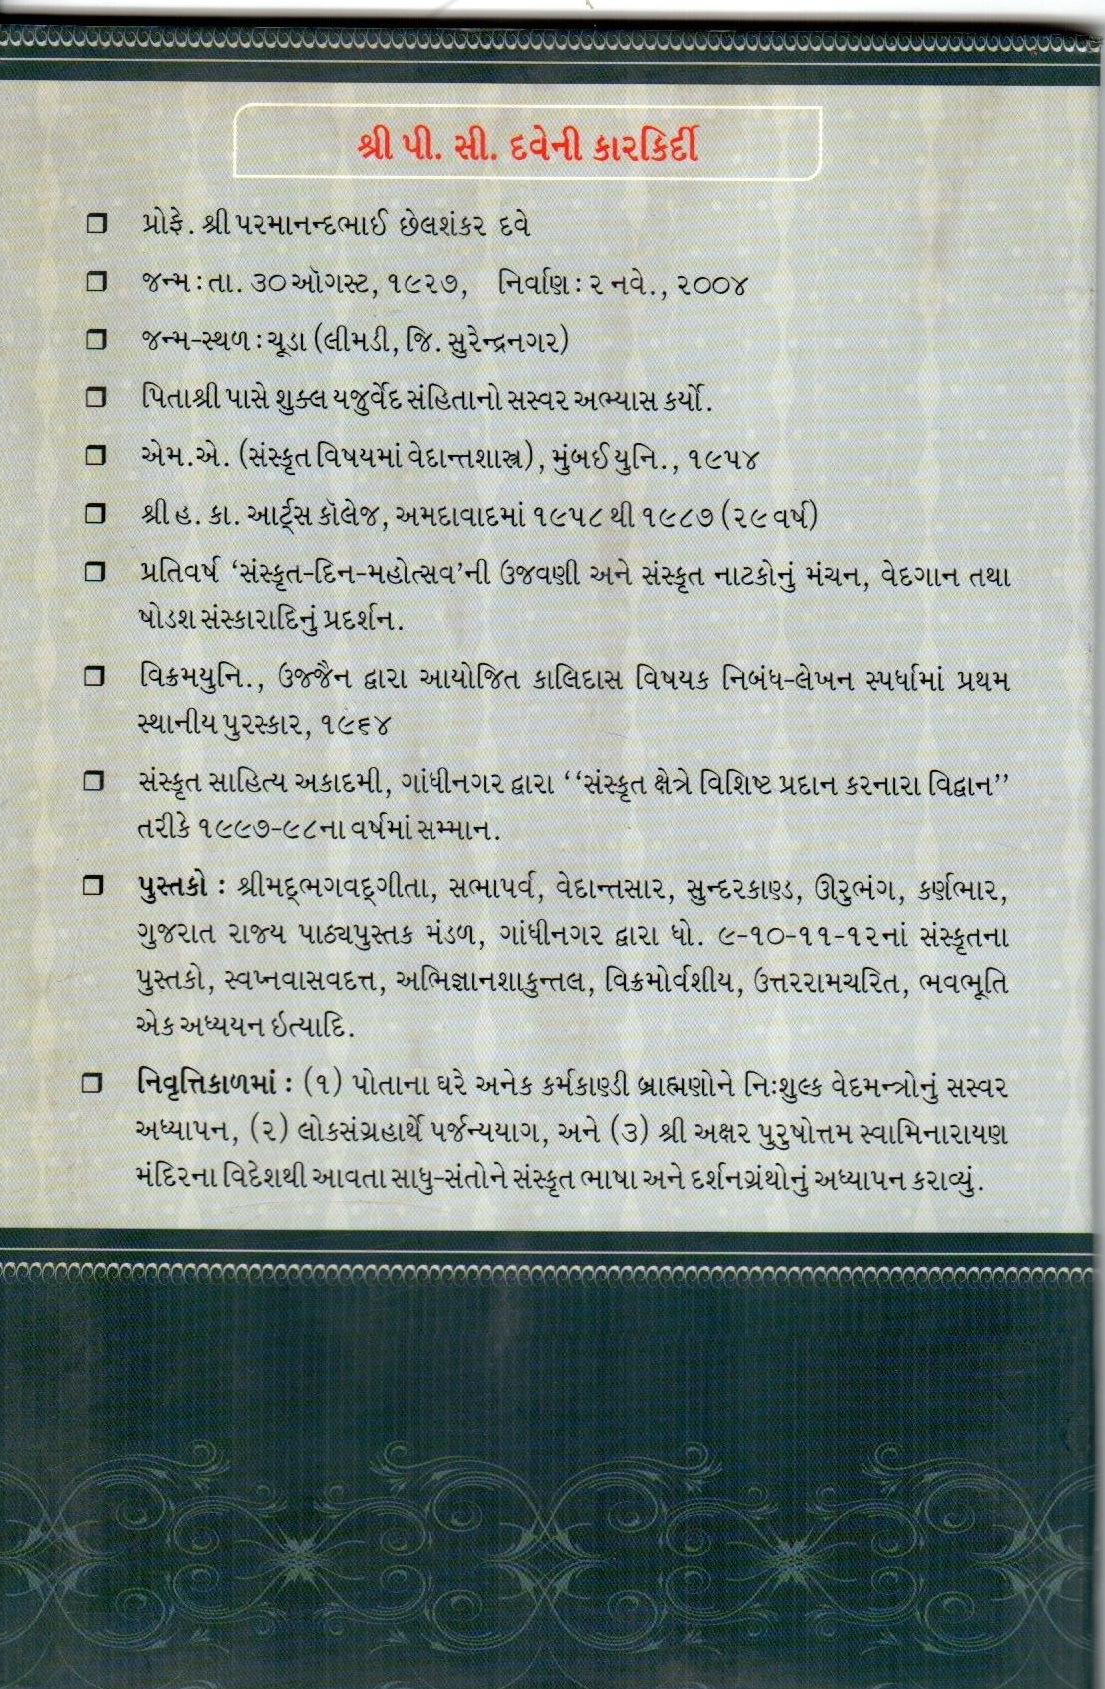 શ્રી પી. સી. દવેની કારકિર્દી
❒ પ્રોફે. શ્રી પરમાનન્દભાઈ છેલશંકર દવે
❒ જન્મ : તા. ૩૦ ઑગસ્ટ, ૧૯૨૭, નિર્વાણ : ૨ નવે., ૨૦૦૪
❒ જન્મ-સ્થળ : ચૂડા (લીમડી, જિ. સુરેન્દ્રનગર)
❒ પિતાશ્રી પાસે શુક્લ યજુર્વેદ સંહિતાનો સસ્વર અભ્યાસ કર્યો.
❒ એમ.એ. (સંસ્કૃત વિષયમાં વેદાન્તશાસ્ત્ર), મુંબઈ યુનિ., ૧૯૫૪
❒ શ્રી હ. કા. આર્ટ્સ કૉલેજ, અમદાવાદમાં ૧૯૫૮ થી ૧૯૮૭ (૨૯ વર્ષ)
❒ પ્રતિવર્ષ ‘સંસ્કૃત-દિન-મહોત્સવ’ની ઉજવણી અને સંસ્કૃત નાટકોનું મંચન, વેદગાન તથા
ષોડશ સંસ્કારાદિનું પ્રદર્શન.
❒ વિક્રમયુનિ., ઉજ્જૈન દ્વારા આયોજિત કાલિદાસ વિષયક નિબંધ-લેખન સ્પર્ધામાં પ્રથમ
સ્થાનીય પુરસ્કાર, ૧૯૬૪
❒ સંસ્કૃત સાહિત્ય અકાદમી, ગાંધીનગર દ્વારા ‘‘સંસ્કૃત ક્ષેત્રે વિશિષ્ટ પ્રદાન કરનારા વિદ્વાન’’
તરીકે ૧૯૯૭-૯૮ના વર્ષમાં સમ્માન.
❒ પુસ્તકો : શ્રીમદ્ભગવદ્ગીતા, સભાપર્વ, વેદાન્તસાર, સુન્દરકાણ્ડ, ઊરુભંગ, કર્ણભાર,
ગુજરાત રાજ્ય પાઠ્યપુસ્તક મંડળ, ગાંધીનગર દ્વારા ધો. ૯-૧૦-૧૧-૧૨નાં સંસ્કૃતના
પુસ્તકો, સ્વપ્નવાસવદત્ત, અભિજ્ઞાનશાકુન્તલ, વિક્રમોર્વશીય, ઉત્તરરામચરિત, ભવભૂતિ
એક અધ્યયન ઇત્યાદિ.
❒ નિવૃત્તિકાળમાં : (૧) પોતાના ઘરે અનેક કર્મકાણ્ડી બ્રાહ્મણોને નિઃશુલ્ક વેદમન્ત્રોનું સસ્વર
અધ્યાપન, (૨) લોકસંગ્રહાર્થે પર્જન્યયાગ, અને (૩) શ્રી અક્ષર પુરુષોત્તમ સ્વામિનારાયણ
મંદિરના વિદેશથી આવતા સાધુ-સંતોને સંસ્કૃત ભાષા અને દર્શનગ્રંથોનું અધ્યાપન કરાવ્યું.